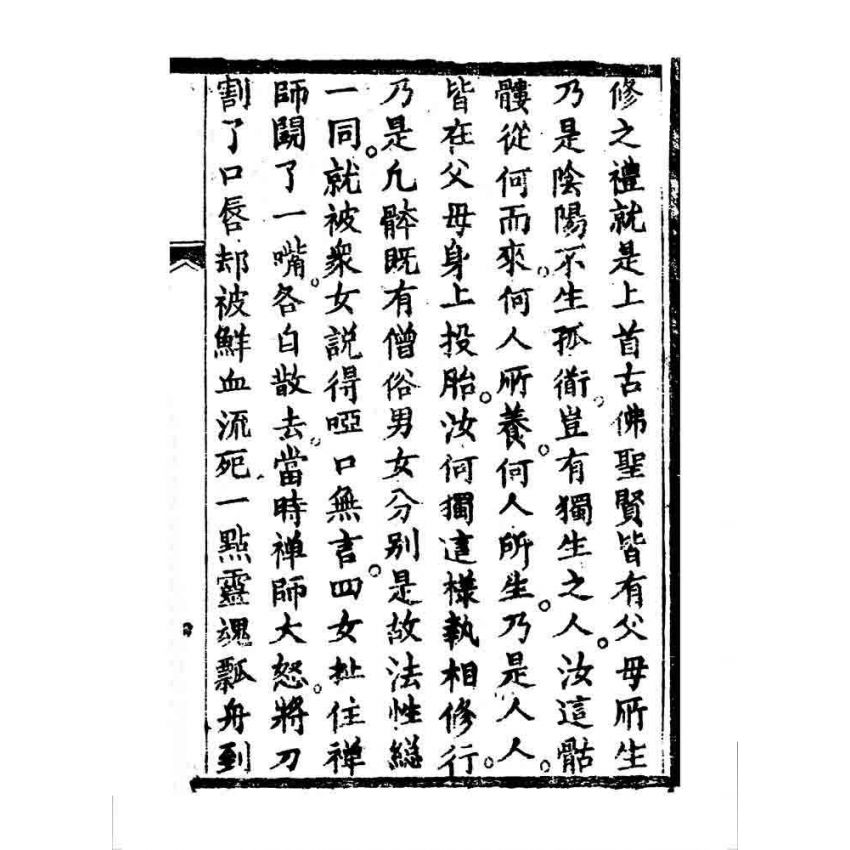 修之禮就是上首古佛聖賢皆有父母所生
乃是陰陽不生孤衜。豈有獨生之人。汝這骷
髏從何而來。何人所養。何人所生。乃是人人。
皆在父母身上投胎。汝何獨這樣執相修行。
乃是凢體既有僧俗男女分别是故法性緫
一同。就被衆女說得啞口無言。四女扯住禅
師闘了一嘴。各自散去。當時禅師大怒。將刀
割了口唇却被鮮血流死一點靈魂飄舟到